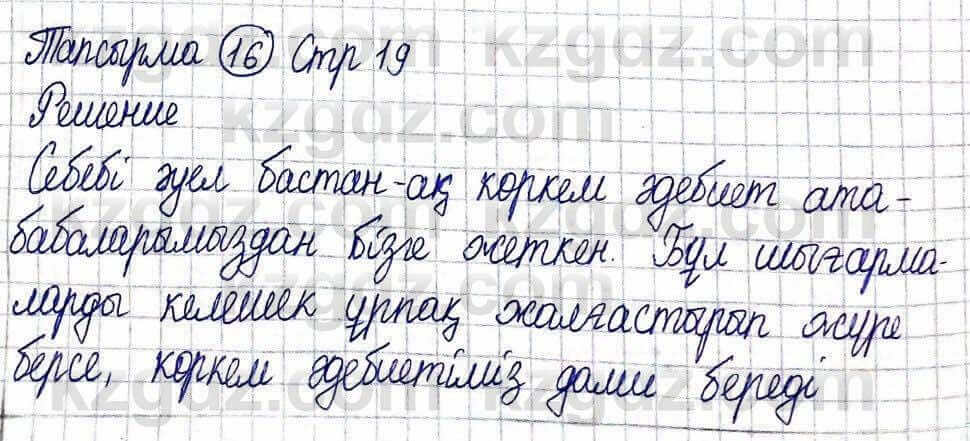 Тапсырма 16 Стр 19
Решение
Себебі әуел бастан-ақ көркем әдебиет ата-
бабаларымыздан бізге жеткен. Бұл шығарма-
ларды келешек ұрпақ жалғастырып жүре
берсе, көркем әдебиетіміз дами береді
kzgdz.com